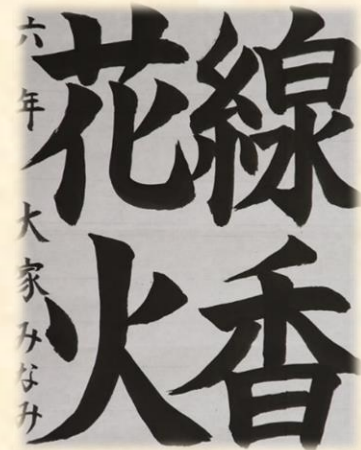 線香
花火
六年 大家みなみ